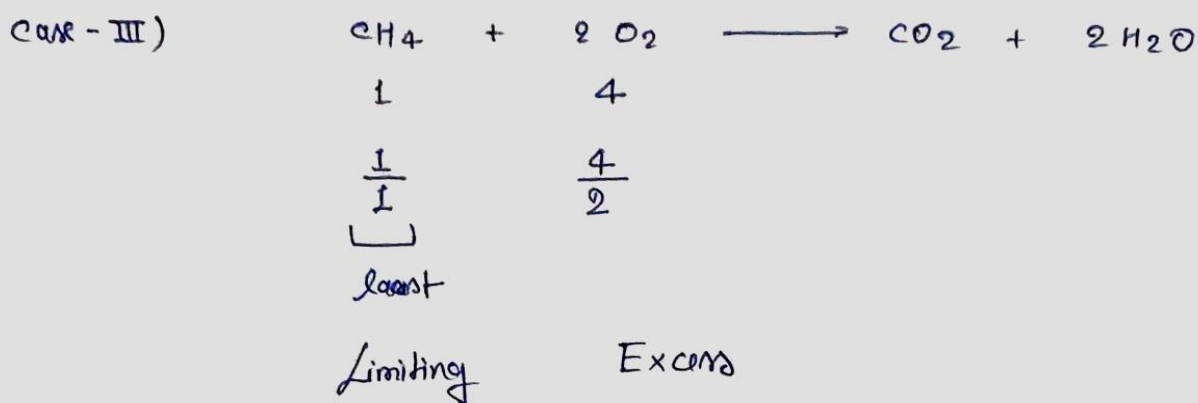 Case - III) CH4 + 2 O2 ⟶ CO2 + 2 H2O
1 4
1/1 4/2
least
Limiting Excess